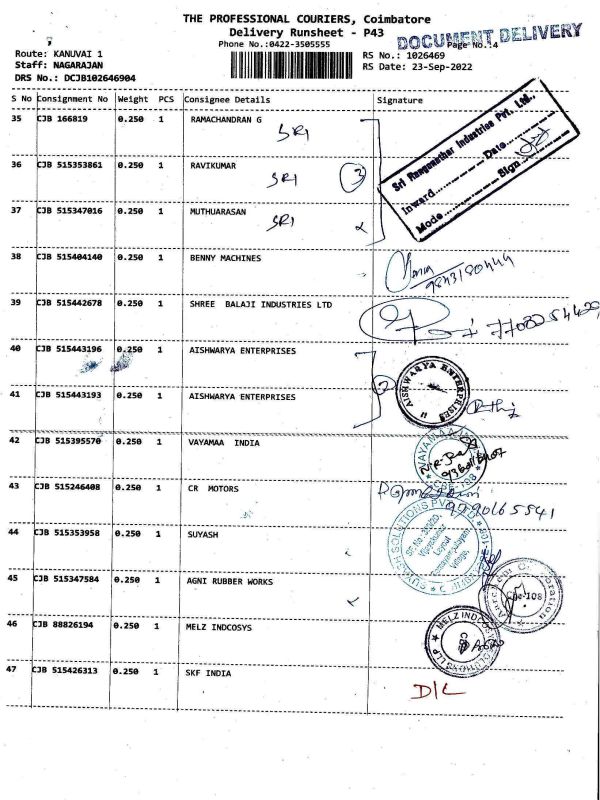 THE PROFESSIONAL COURIERS, Coimbatore
Delivery Runsheet - P43
Phone No.:0422-3505555
DOCUMENT DELIVERY
Page No.:4
Route: KANUVAI 1
RS No.: 1026469
Staff: NAGARAJAN
RS Date: 23-Sep-2022
DRS No.: DCJB102646904
S No Consignment No Weight PCS Consignee Details Signature
35 CJB 166819 0.250 1 RAMACHANDRAN G
SRI
36 CJB 515353861 0.250 1 RAVIKUMAR
SRI 3
37 CJB 515347016 0.250 1 MUTHUARASAN
SRI
Sri Ranganathar Industries Pvt. Ltd.,
Inward Date
Mode Sign
38 CJB 515404140 0.250 1 BENNY MACHINES
39 CJB 515442678 0.250 1 SHREE BALAJI INDUSTRIES LTD
40 CJB 515443196 0.250 1 AISHWARYA ENTERPRISES
2
AISHWARYA ENTERPRISES
41 CJB 515443193 0.250 1 AISHWARYA ENTERPRISES
42 CJB 515395570 0.250 1 VAYAMAA INDIA
43 CJB 515246408 0.250 1 CR MOTORS
9790165541
44 CJB 515353958 0.250 1 SUYASH
45 CJB 515347584 0.250 1 AGNI RUBBER WORKS
46 CJB 88826194 0.250 1 MELZ INDCOSYS
47 CJB 515426313 0.250 1 SKF INDIA
D/L